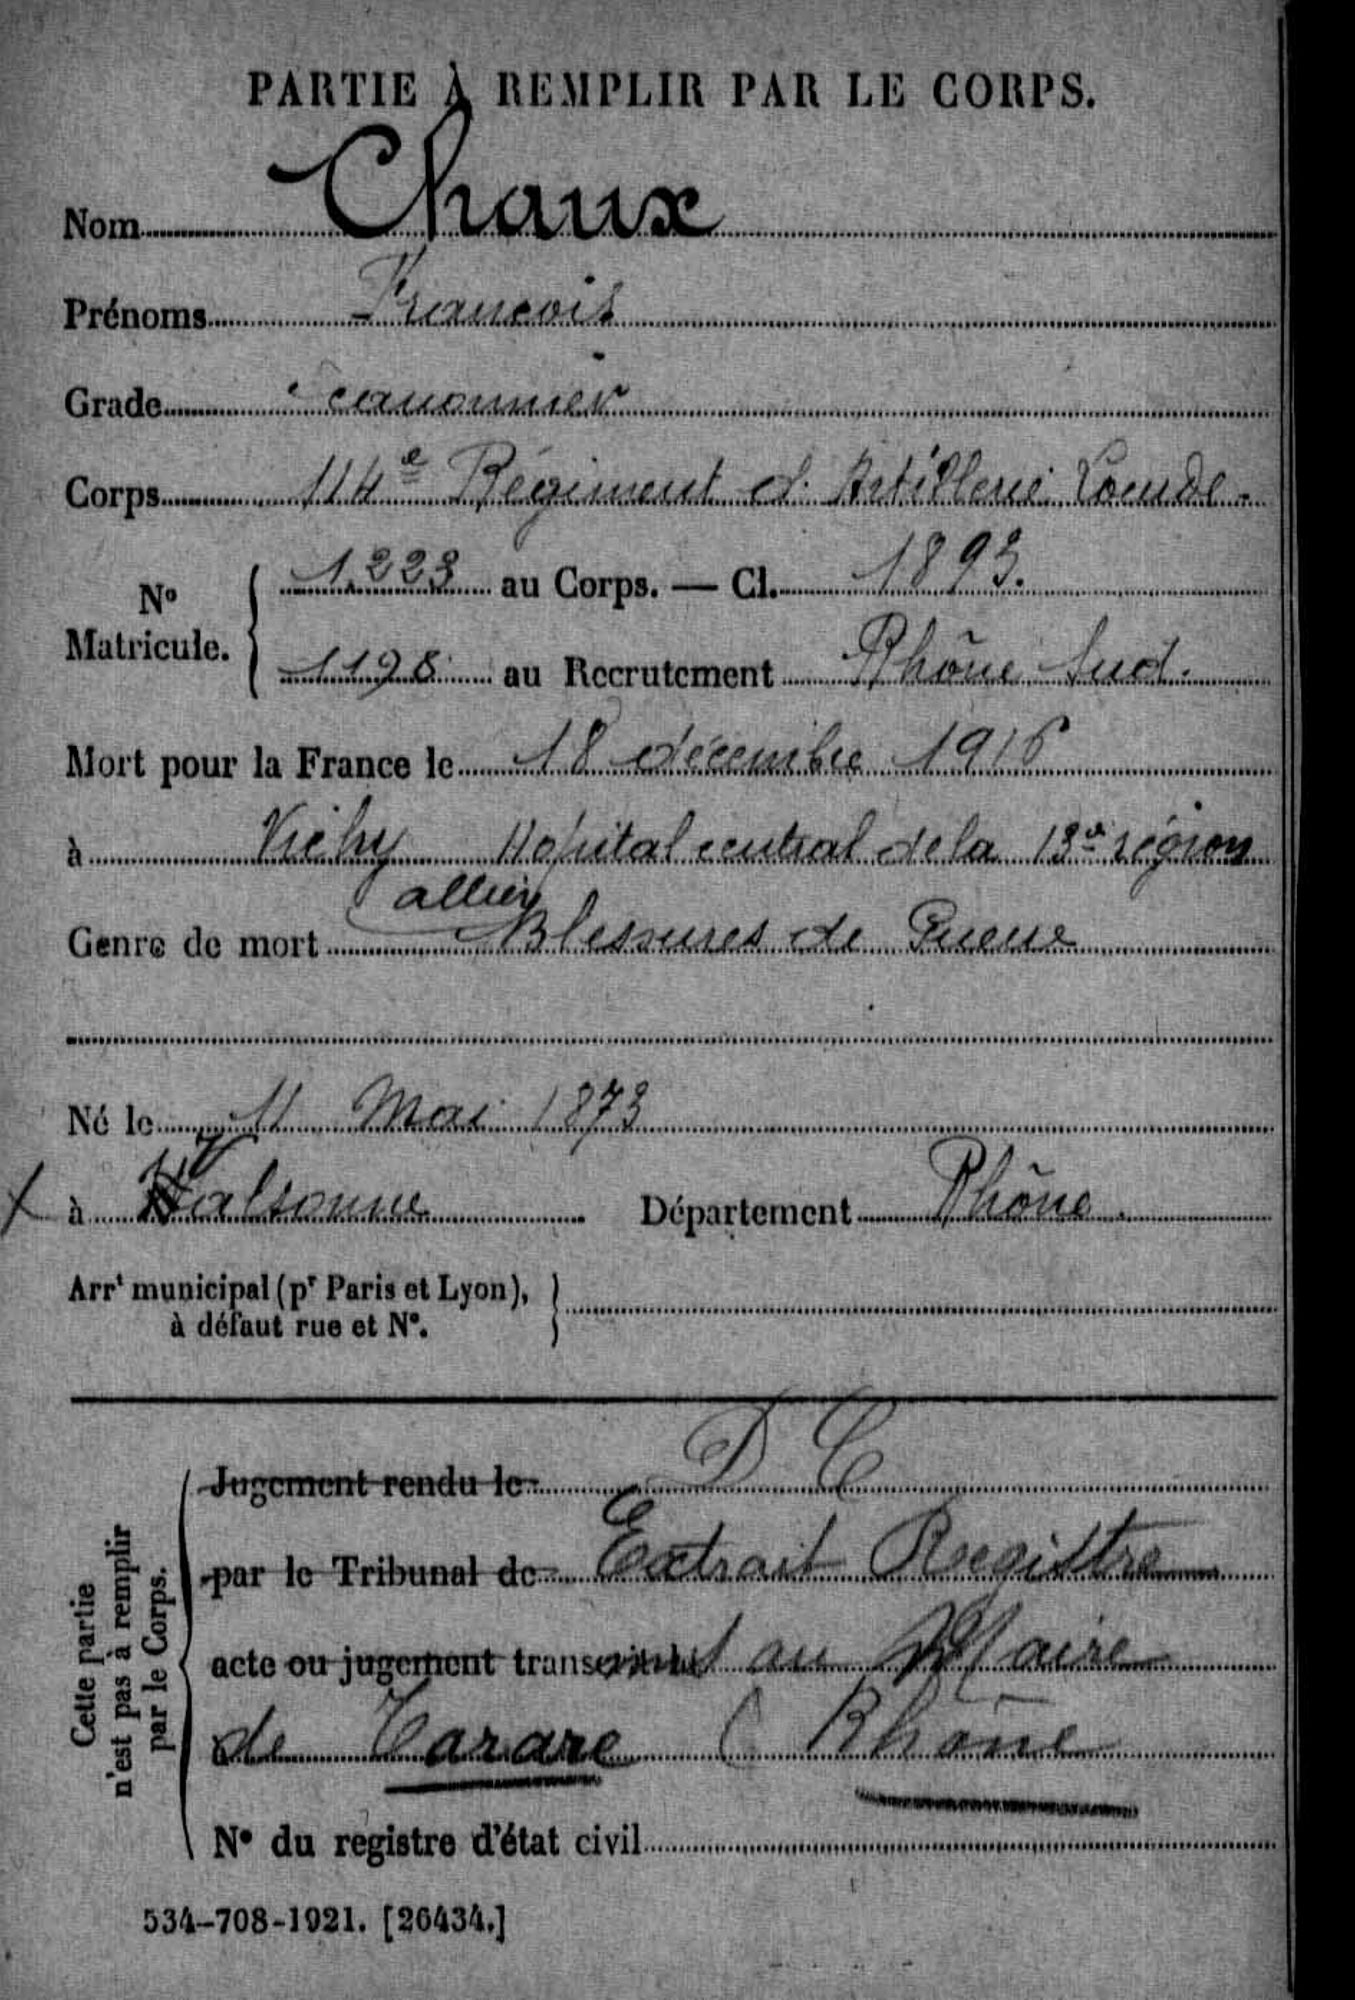 PARTIE À REMPLIR PAR LE CORPS.
Nom Chaux
Prénoms François
Grade canonnier
Corps 114e Régiment d'Artillerie Lourde.
No Matricule. { 1.223 au Corps. — Cl. 1893.
1198 au Recrutement Rhône Sud.
Mort pour la France le 18 décembre 1916
à Vichy Hopital central de la 13e région
allier
Genre de mort Blessures de Guerre
Né le 11 Mai 1873
à Valsonne Département Rhône.
Arrt municipal (pr Paris et Lyon),
à défaut rue et No.
Cette partie
n'est pas à remplir
par le Corps.
Jugement rendu le D C
par le Tribunal de Extrait Registre
acte ou jugement transmis au Maire
de Tarare (Rhône
No du registre d'état civil
534-708-1921. [26434.]